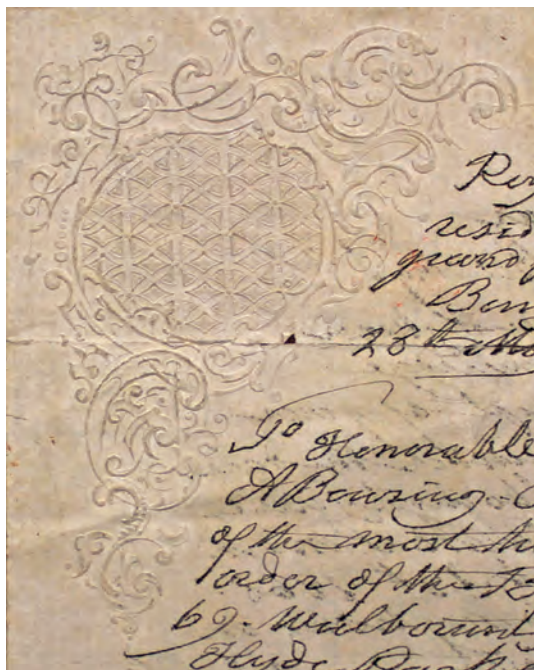 resid
grand
28th Mo
To Honorable
A Bowring
of the most H
order of the
69. Wulbourn
Hyde Park